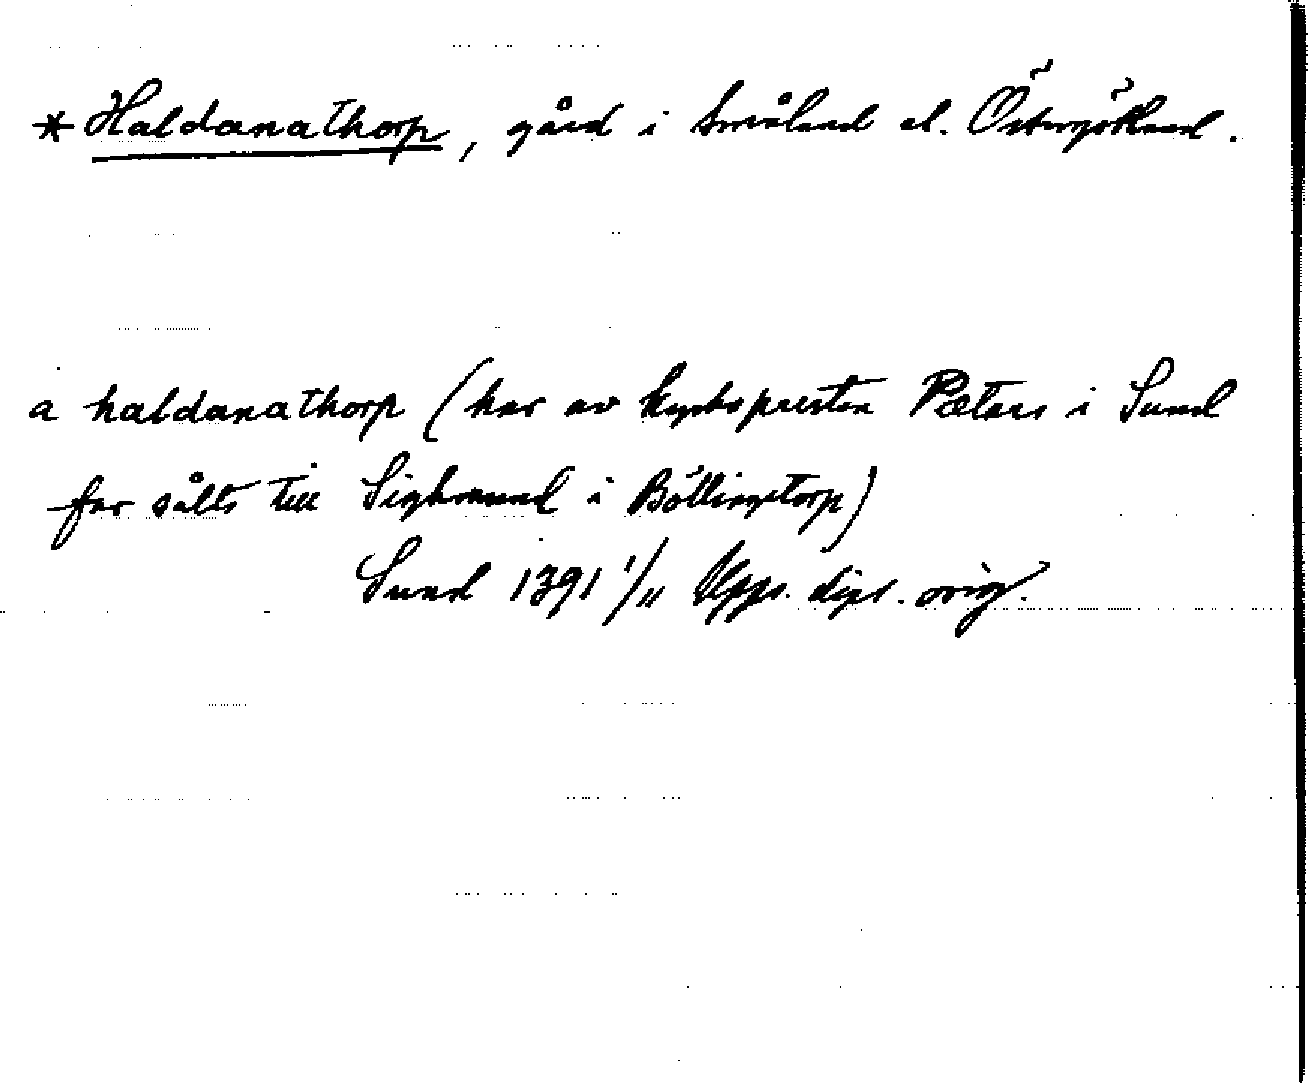 * Haldanathorp, gård i Småland el. Östergötland.
a haldanathorp (har av kyrkopresten Pætars i Sund
far sålts till Sighmund i Böllingstorp)
Sund 1391 1/11 Upps. dipl. orig.